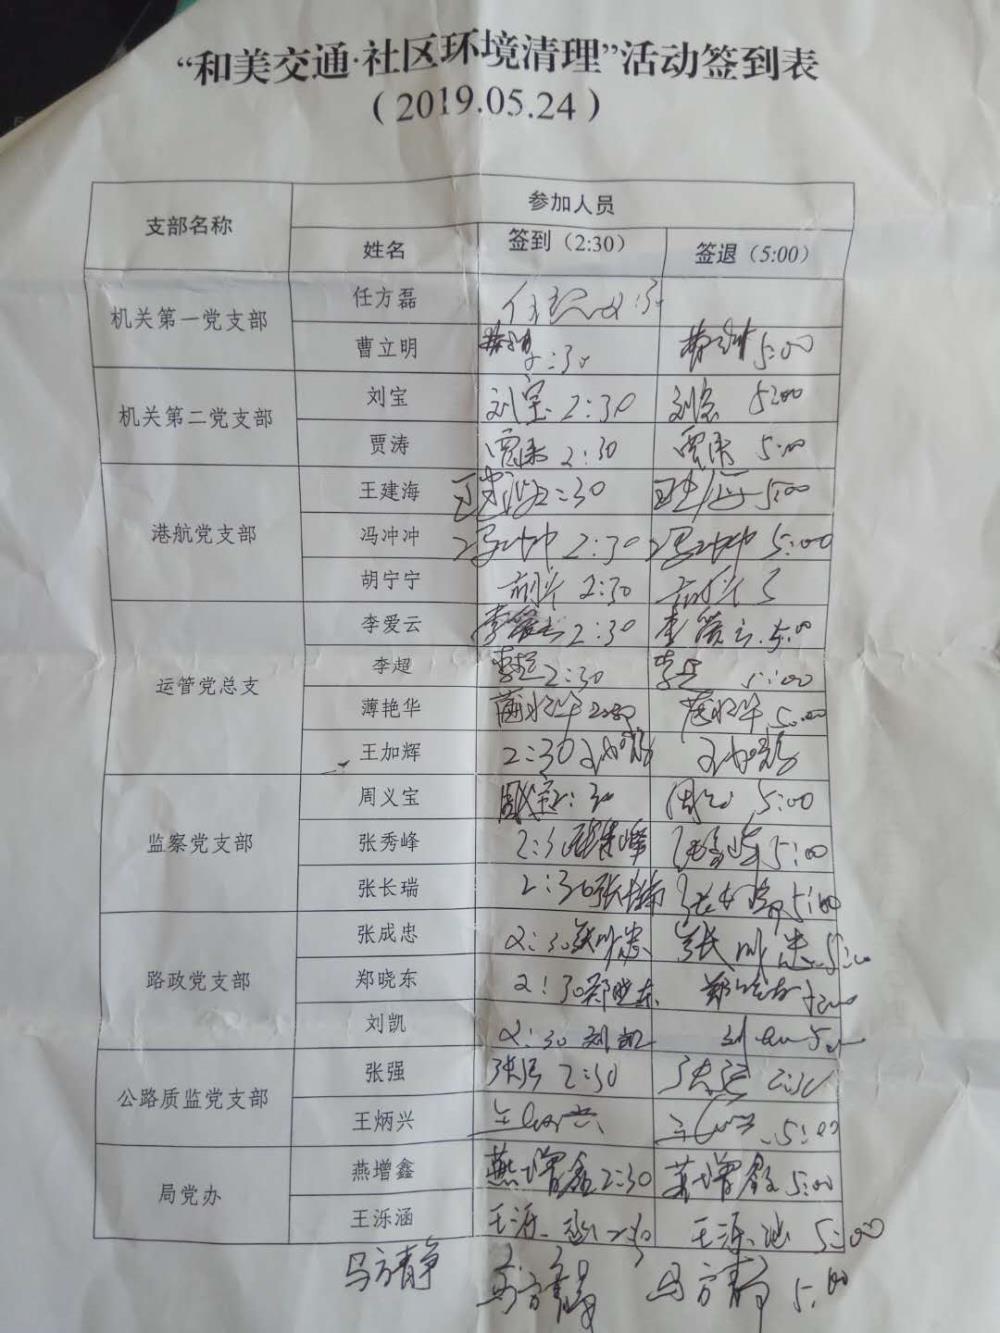 “和美交通·社区环境清理”活动签到表
（2019.05.24）
支部名称 参加人员
姓名 签到（2:30） 签退（5:00）
机关第一党支部
任方磊
曹立明 2:30 5:00
机关第二党支部
刘宝 刘宝 2:30 刘宝 5:00
贾涛 贾涛 2:30 贾涛 5:00
港航党支部
王建海 2:30 5:00
冯冲冲 冯冲冲 2:30 冯冲冲 5:00
胡宁宁 2:30
运管党总支
李爱云 李爱云 2:30 李爱云 5:00
李超 李超 2:30 李超 5:00
薄艳华 薄艳华 2:30 薄艳华 5:00
王加辉 2:30 王加辉 王加辉
监察党支部
周义宝 周义宝 2:30 周义宝 5:00
张秀峰 2:30 张秀峰 张秀峰 5:00
张长瑞 2:30 张长瑞 张长瑞 5:00
路政党支部
张成忠 2:30 张成忠 张成忠 5:00
郑晓东 2:30 郑晓东 郑晓东
刘凯 2:30 刘凯 刘凯
公路质监党支部
张强 张强 2:30 张强
王炳兴 王炳兴 王炳兴 5:00
局党办
燕增鑫 燕增鑫 2:30 燕增鑫 5:00
王泺涵 王泺涵 2:30 王泺涵 5:00
马方静 2:30 马方静 马方静 5:00